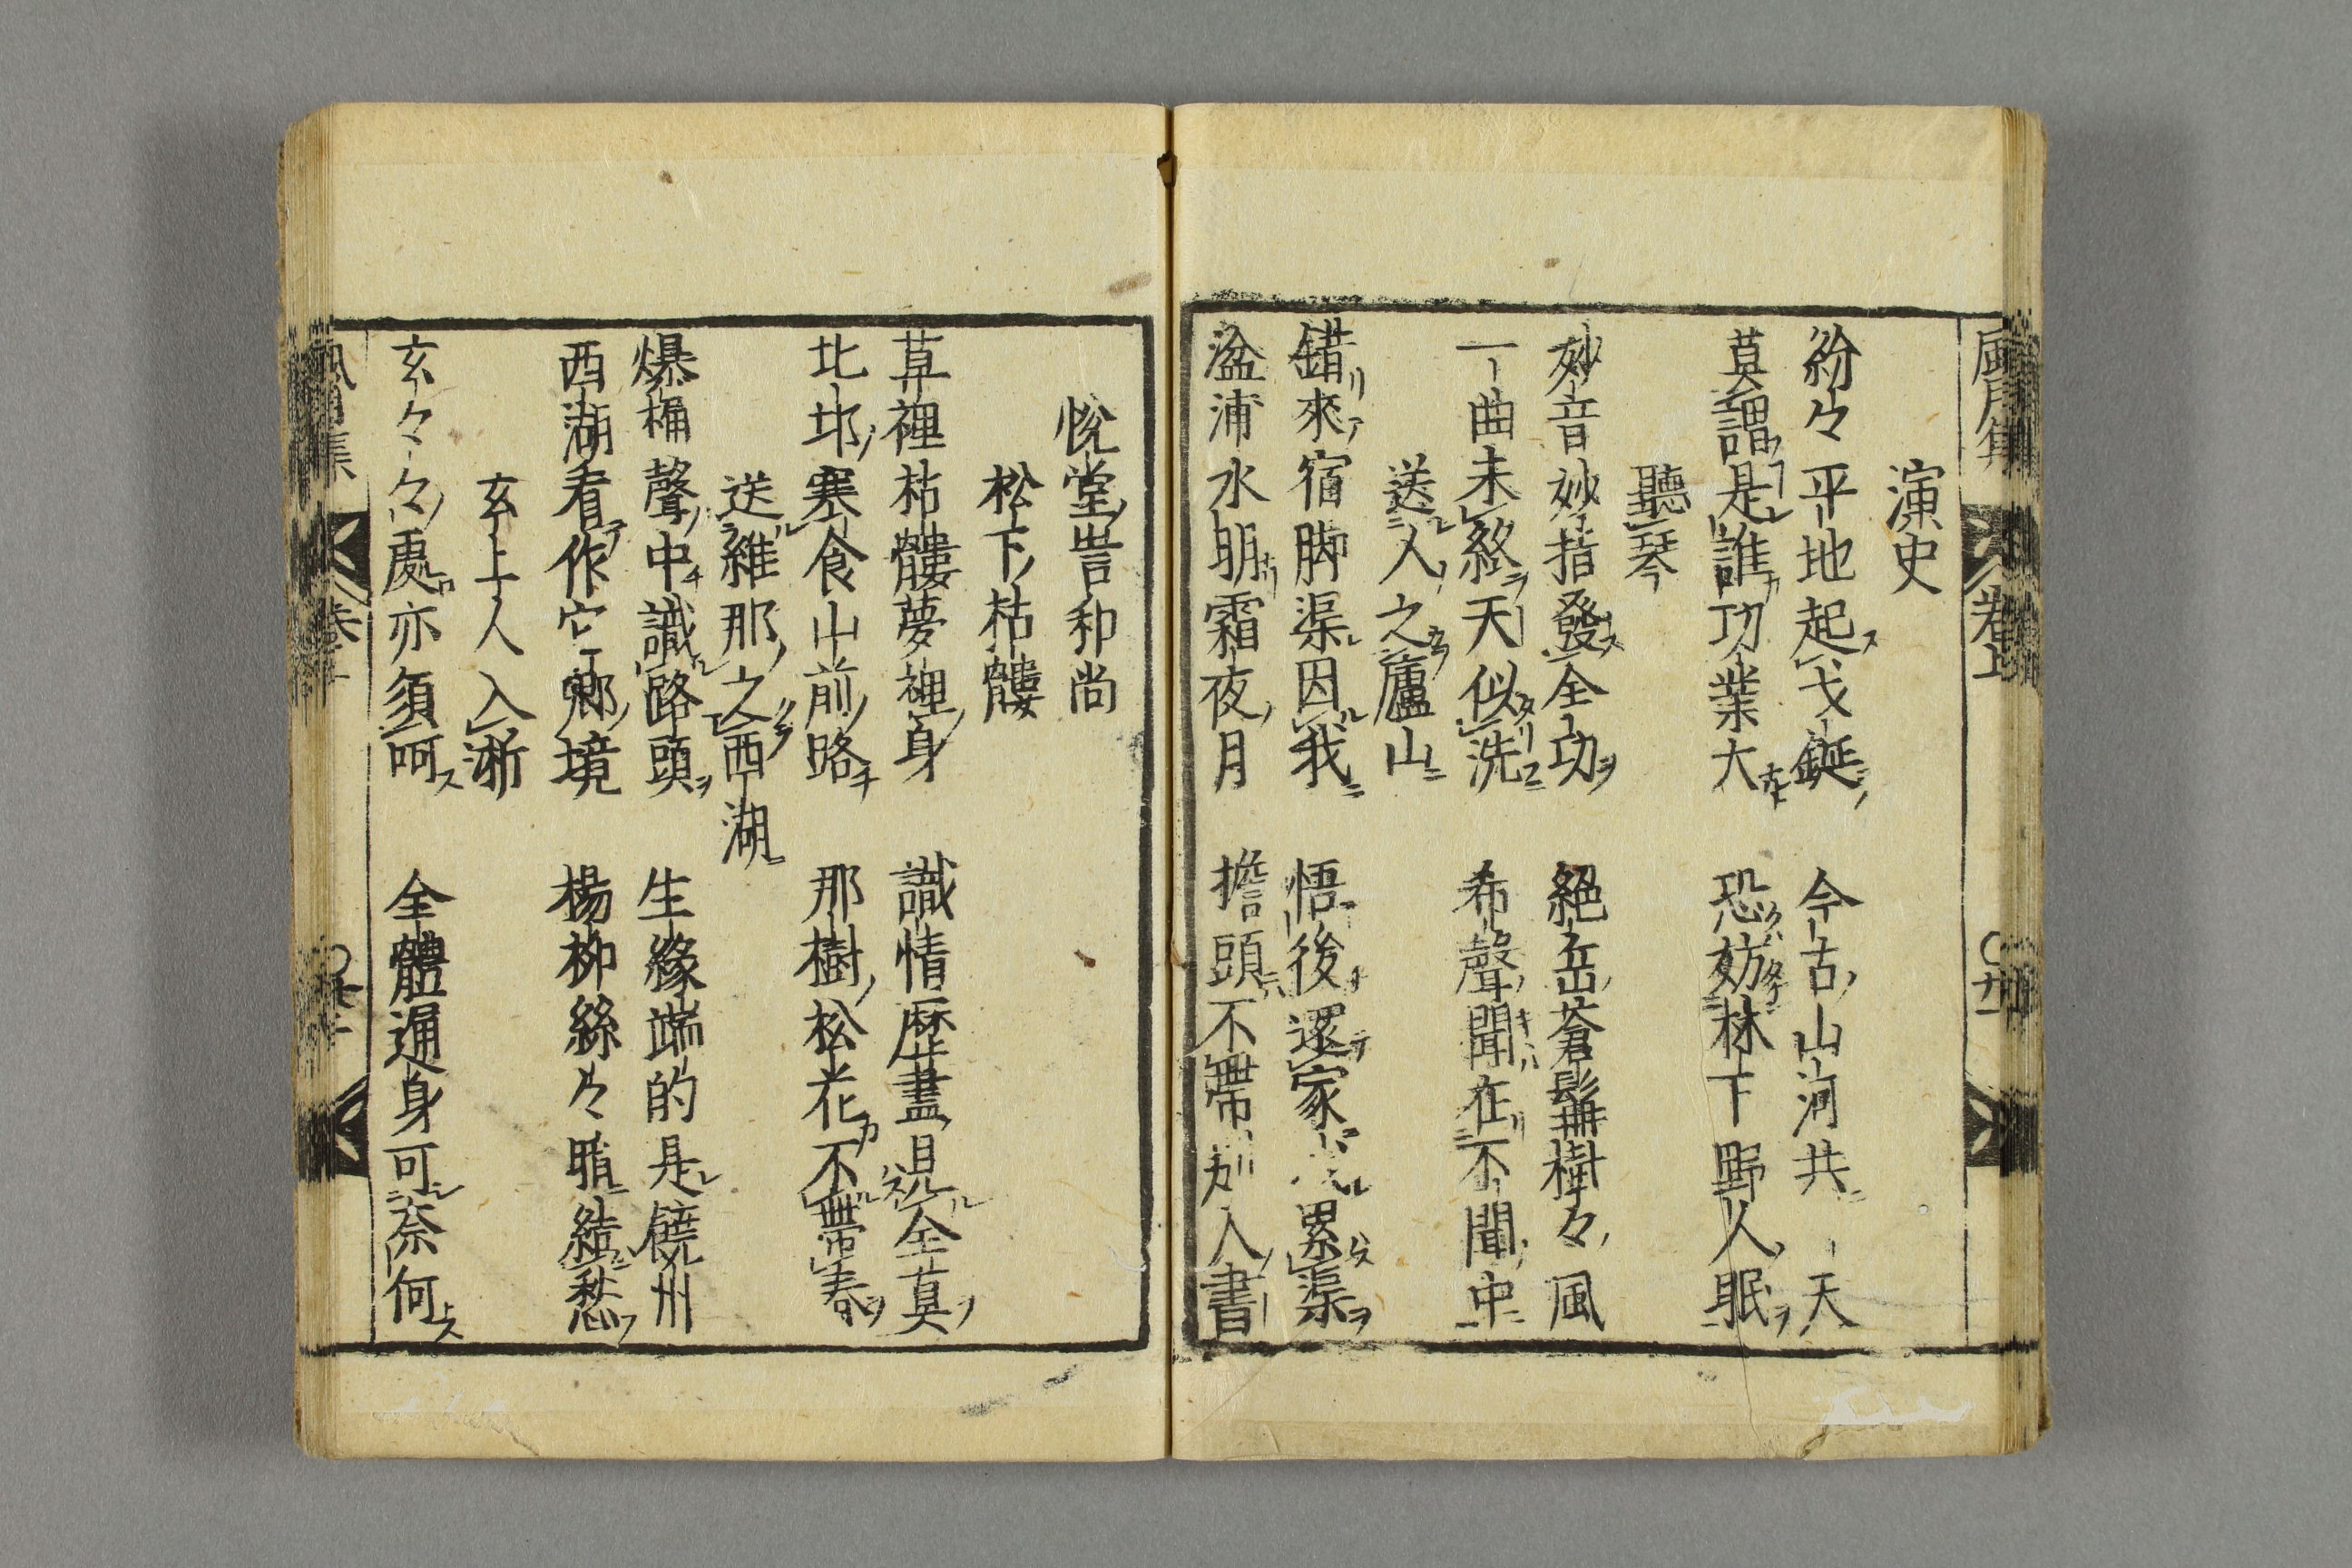 演史
紛々平地起戈鋋　今古山河共　天
莫謂是誰功業大　恐妨林下野人眠
聽琴
妙音妙指發全功　絕岳蒼髯樹々風
一曲未終天似洗　希聲聞在不聞中
送人之廬山
錯來宿脚渠因我　悟後還家　累渠
湓浦水明霜夜月　擔頭不帶別人書
悅堂誾和尚
松下枯髏
草裡枯髏夢裡身　識情歷盡見全莫
北邙寒食山前路　那樹松花不帶春
送維那之西湖
爆桶聲中識路頭　生緣端的是饒州
西湖看作它鄉境　楊柳絲々暗結愁
玄上人入淅
玄々々處亦須呵　全體通身可奈何